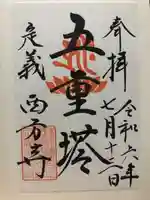 奉拝
令和六年
七月十六日
五重塔
定義
西方寺